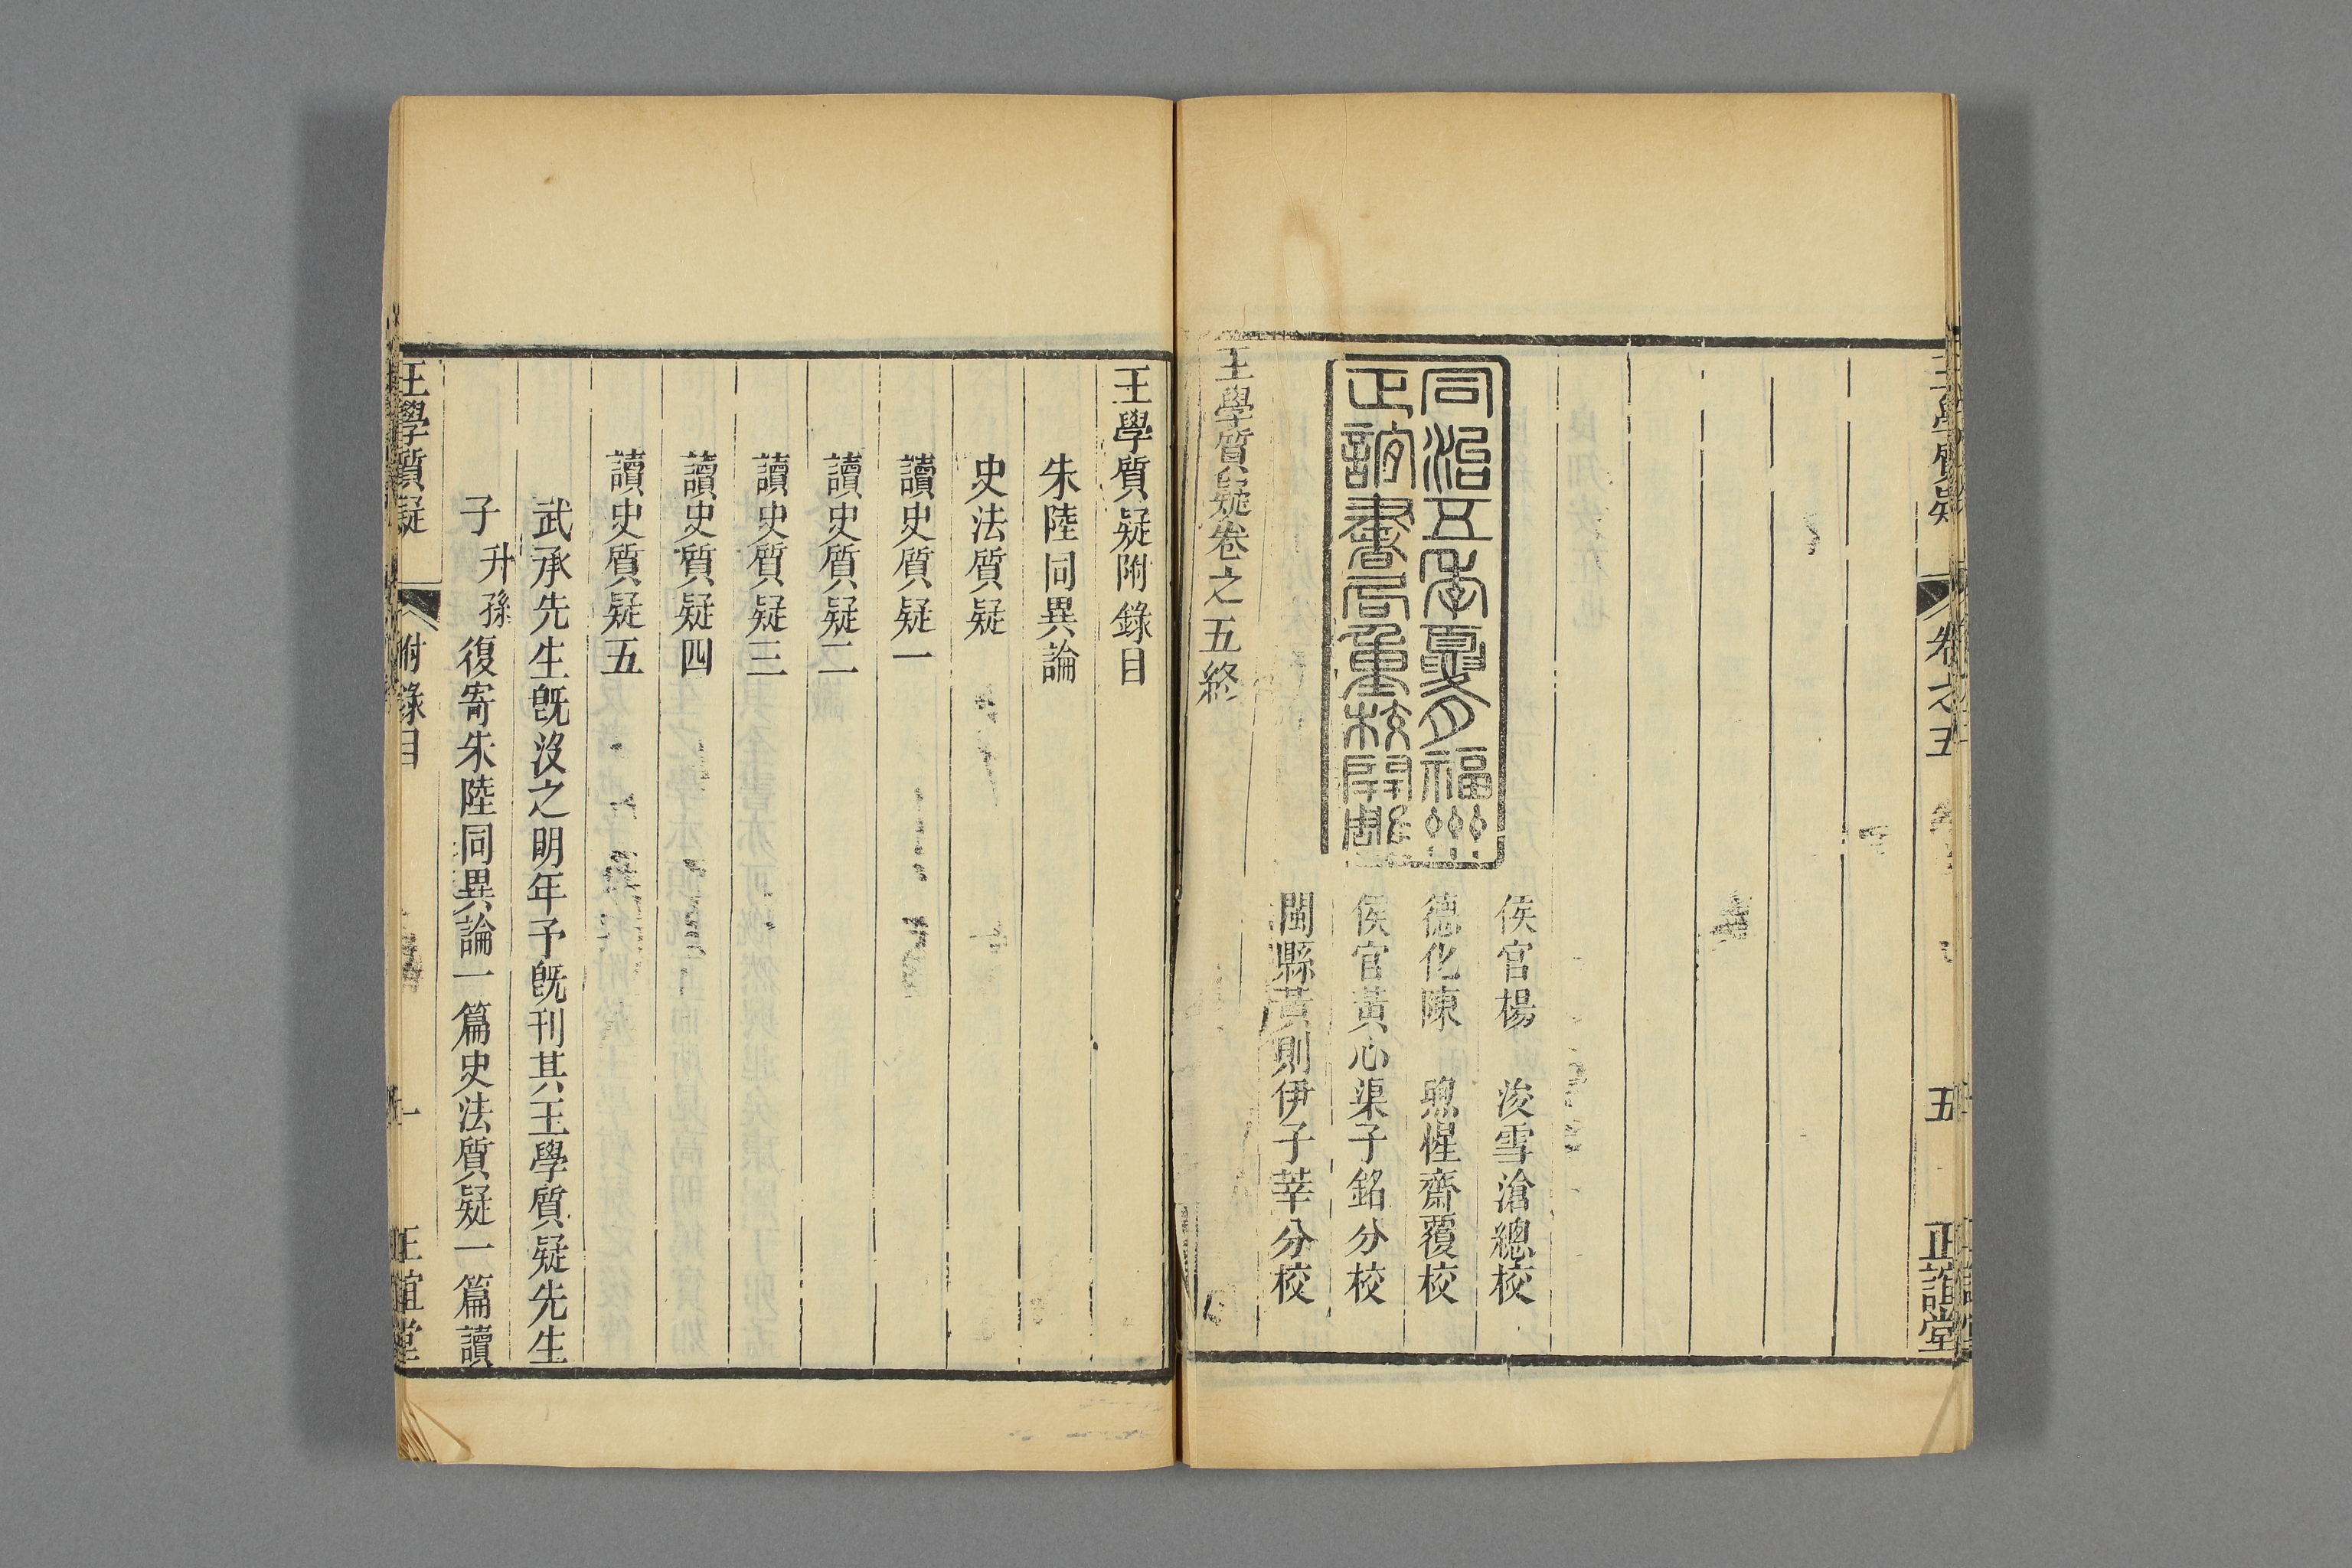 王學質疑 卷之五 五 正誼堂
侯官楊 浚雪滄總校
德化陳 惺齋覆校
侯官黃心渠子銘分校
閩縣黃則伊子莘分校
同治五年夏月福州
正誼書局重校開雕
王學質疑卷之五終
王學質疑附錄目
朱陸同異論
史法質疑
讀史質疑一
讀史質疑二
讀史質疑三
讀史質疑四
讀史質疑五
武承先生旣沒之明年予旣刊其王學質疑先生
子升孫復寄朱陸同異論一篇史法質疑一篇讀
王學質疑 附錄目 一 正誼堂